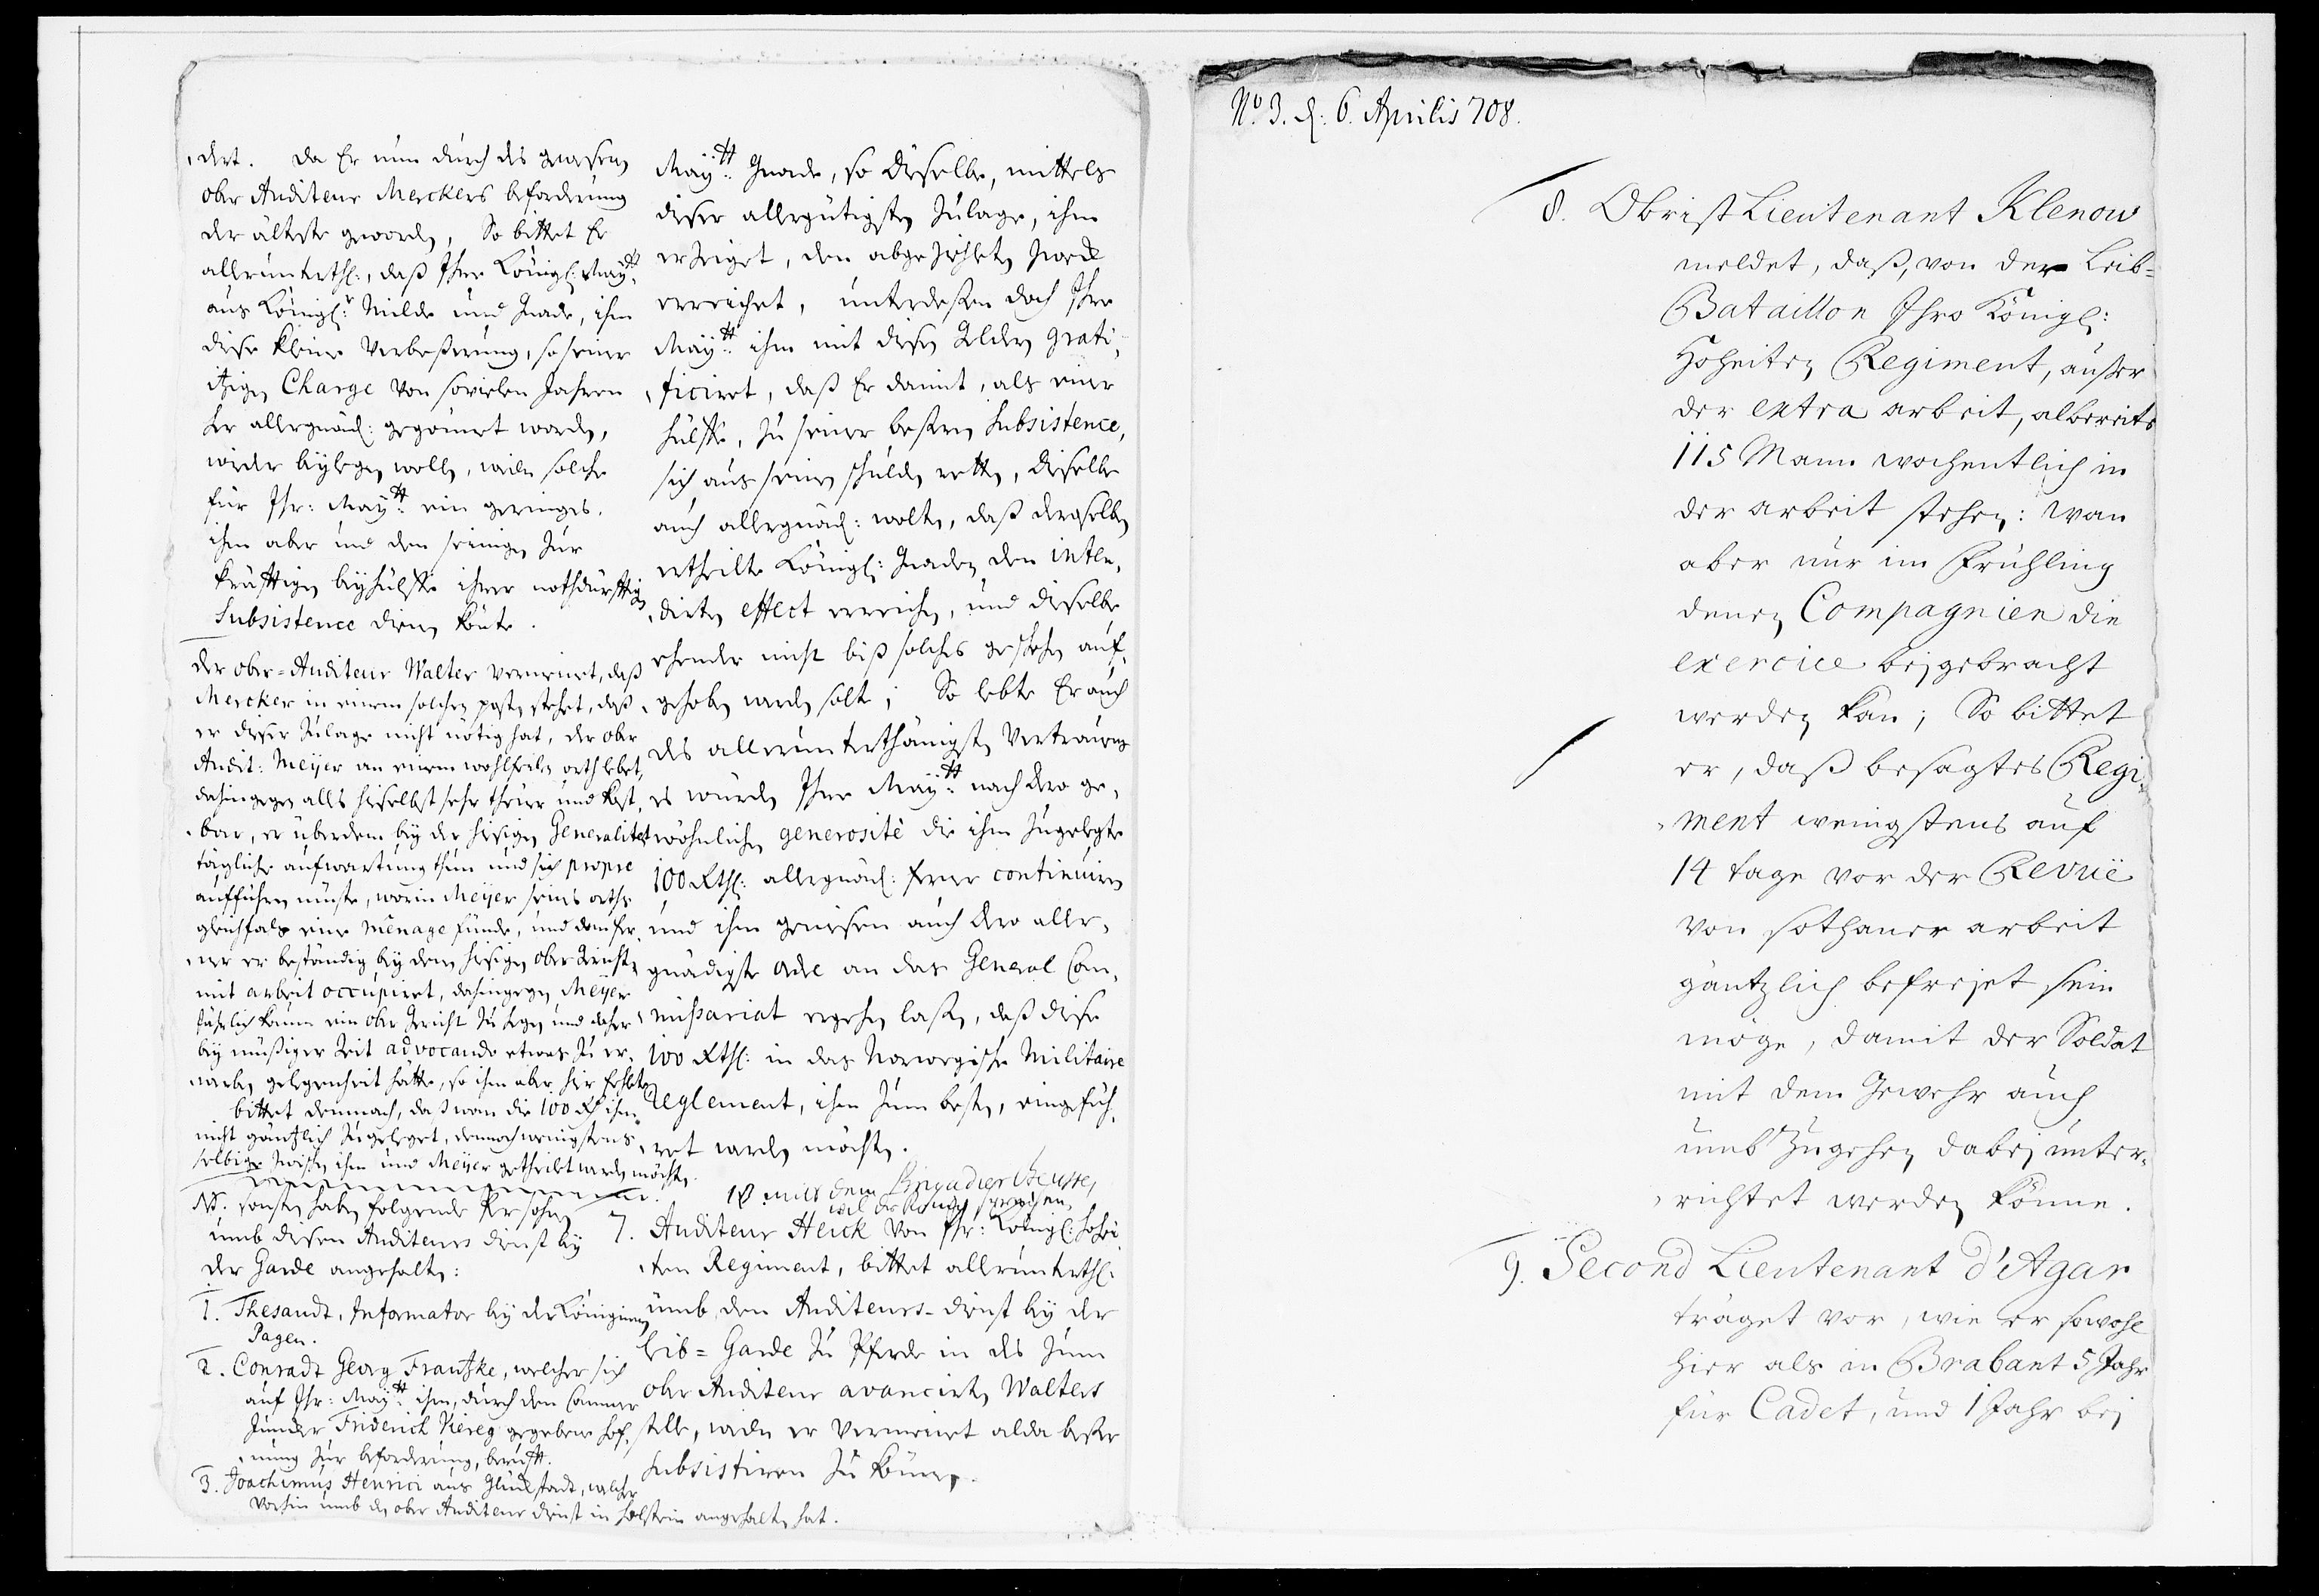 dert. Da Er nun durch des gewesen
ober Auditeur Merckers beforderung
der älteste geworden, So bittet Er
allerunterth:, daß Ihre Königl: May:tt
aus Königl:r Milde und Gnade, ihm
diese kleine Verbeßerung, so seiner
itzigen Charge von sovielen Jahren
her allergnäd: gegönnet worden,
wieder beylegen wollen, weilen solche
für Ihr: May:tt ein geringes,
ihm aber und den seinigen zur
kräfftigen beyhülffe ihrer nothdürfftigen
Subsistence dienen könte.
Der ober-Auditeur Walter vermeinet, daß
Mercker in einem solchen posten stehet, daß
er dieser Zulage nicht nötig hat, der ober
Audit: Meyer an einem wohlfeilen orth lebet,
dahingegen alles hieselbst sehr theuer und kost-
bar, er überdem bey der hiesigen Generalitet
tägliche aufwartung thun und sich propre
aufführen müste, worin Meyer seines orths
gleichfals eine menage finde, und dem fer-
ner er beständig bey dem hiesigen ober Gericht
mit arbeit occupiret, dahingegen Meyer
jährlich kaum ein ober Gericht zu hegen und daher
bey müßiger Zeit advocando etwas zu er-
werben gelegenheit hätte, so ihm aber hier fehlete
bittet demnach, daß wan die 100 Rth ihm
nicht gäntzlich zugeleget, dennoch wenigstens
selbige zwischen ihm und Meyer getheilet werden möchten.
NB. sonsten haben folgende Persohnen
umb diesen Auditeurs dienst bey
der Garde angehalten:
1. Thesandt, Informator bey der Königinnen
Pagen.
2. Conradt Georg Frantzke, welcher sich
auf Ihr: May:tt ihm, durch den Cammer
Juncker Friderich Viereg gegebene hof-
nung zur beforderung, berufft.
3. Joachimus Henrici aus Glückstadt, welcher
vorhin umb den ober Auditeur dienst in Holstein angehalten hat.
May:tt Gnade, so dieselbe, mittels
dieser allergütigsten Zulage, ihm
erzeiget, den abgezielten Zweck
erreichet, unterdeßen doch Ihre
May:tt ihm mit diesen Geldern grati-
ficiret, daß Er damit, als einer
hülffe, zu seiner beßern Subsistence,
sich aus seinen schulden retten, dieselbe
auch allergnäd: wolten, daß derselben
ertheilte Königl: Gnaden den inten-
dirten effect erreichen, und dieselbe
ehender nicht biß solches geschehen auf-
gehoben werden solte; So lebte Er auch
des allerunterthänigsten Vertrauens
es würden Ihre May:tt nach dero ge-
wöhnlichen generosité die ihm zugelegte
100 Rth: allergnäd: ferner continuiren
und ihm geniesen auch dero aller-
gnädigste ordre an das General Com-
missariat ergehen laßen, daß diese
100 Rth: in das Norwegische Militaire
Reglement, ihm zum besten, eingefüh-
ret werden möchten.
mit dem Brigadier
wil der König sprechen
7. Auditeur Heick von Ihr: Königl: Hohei-
ten Regiment, bittet allerunterth:
umb den Auditeurs-dienst bey der
Leib-Garde zu Pferde in des zum
ober Auditeur avancirten Walters
stelle, weilen er vermeinet alda beßer
subsistiren zu können.
No. 3. d: 6. Aprilis 708.
8. Obrist Lieutenant Klenow
meldet, daß, von der Leib-
Bataillon Ihro Königl:
Hoheiten Regiment, außer
der extra arbeit, albereits
115 Mann wochentlich in
der arbeit stehen: wan
aber nur im Frühling
denen Compagnien die
exercice beygebracht
werden kan; So bittet
er, daß besagtes Regi-
ment wenigstens auf
14 tage vor der Revüe
von sothaner arbeit
gäntzlich befreyet sein
möge, damit der Soldat
mit dem Gewehr auch
umb zugehen dabey unter-
richtet werden könne.
9. Second Lieutenant d'Agar
träget vor, wie er sowohl
hier als in Brabant 5 Jahr
für Cadet, und 1 Jahr bey